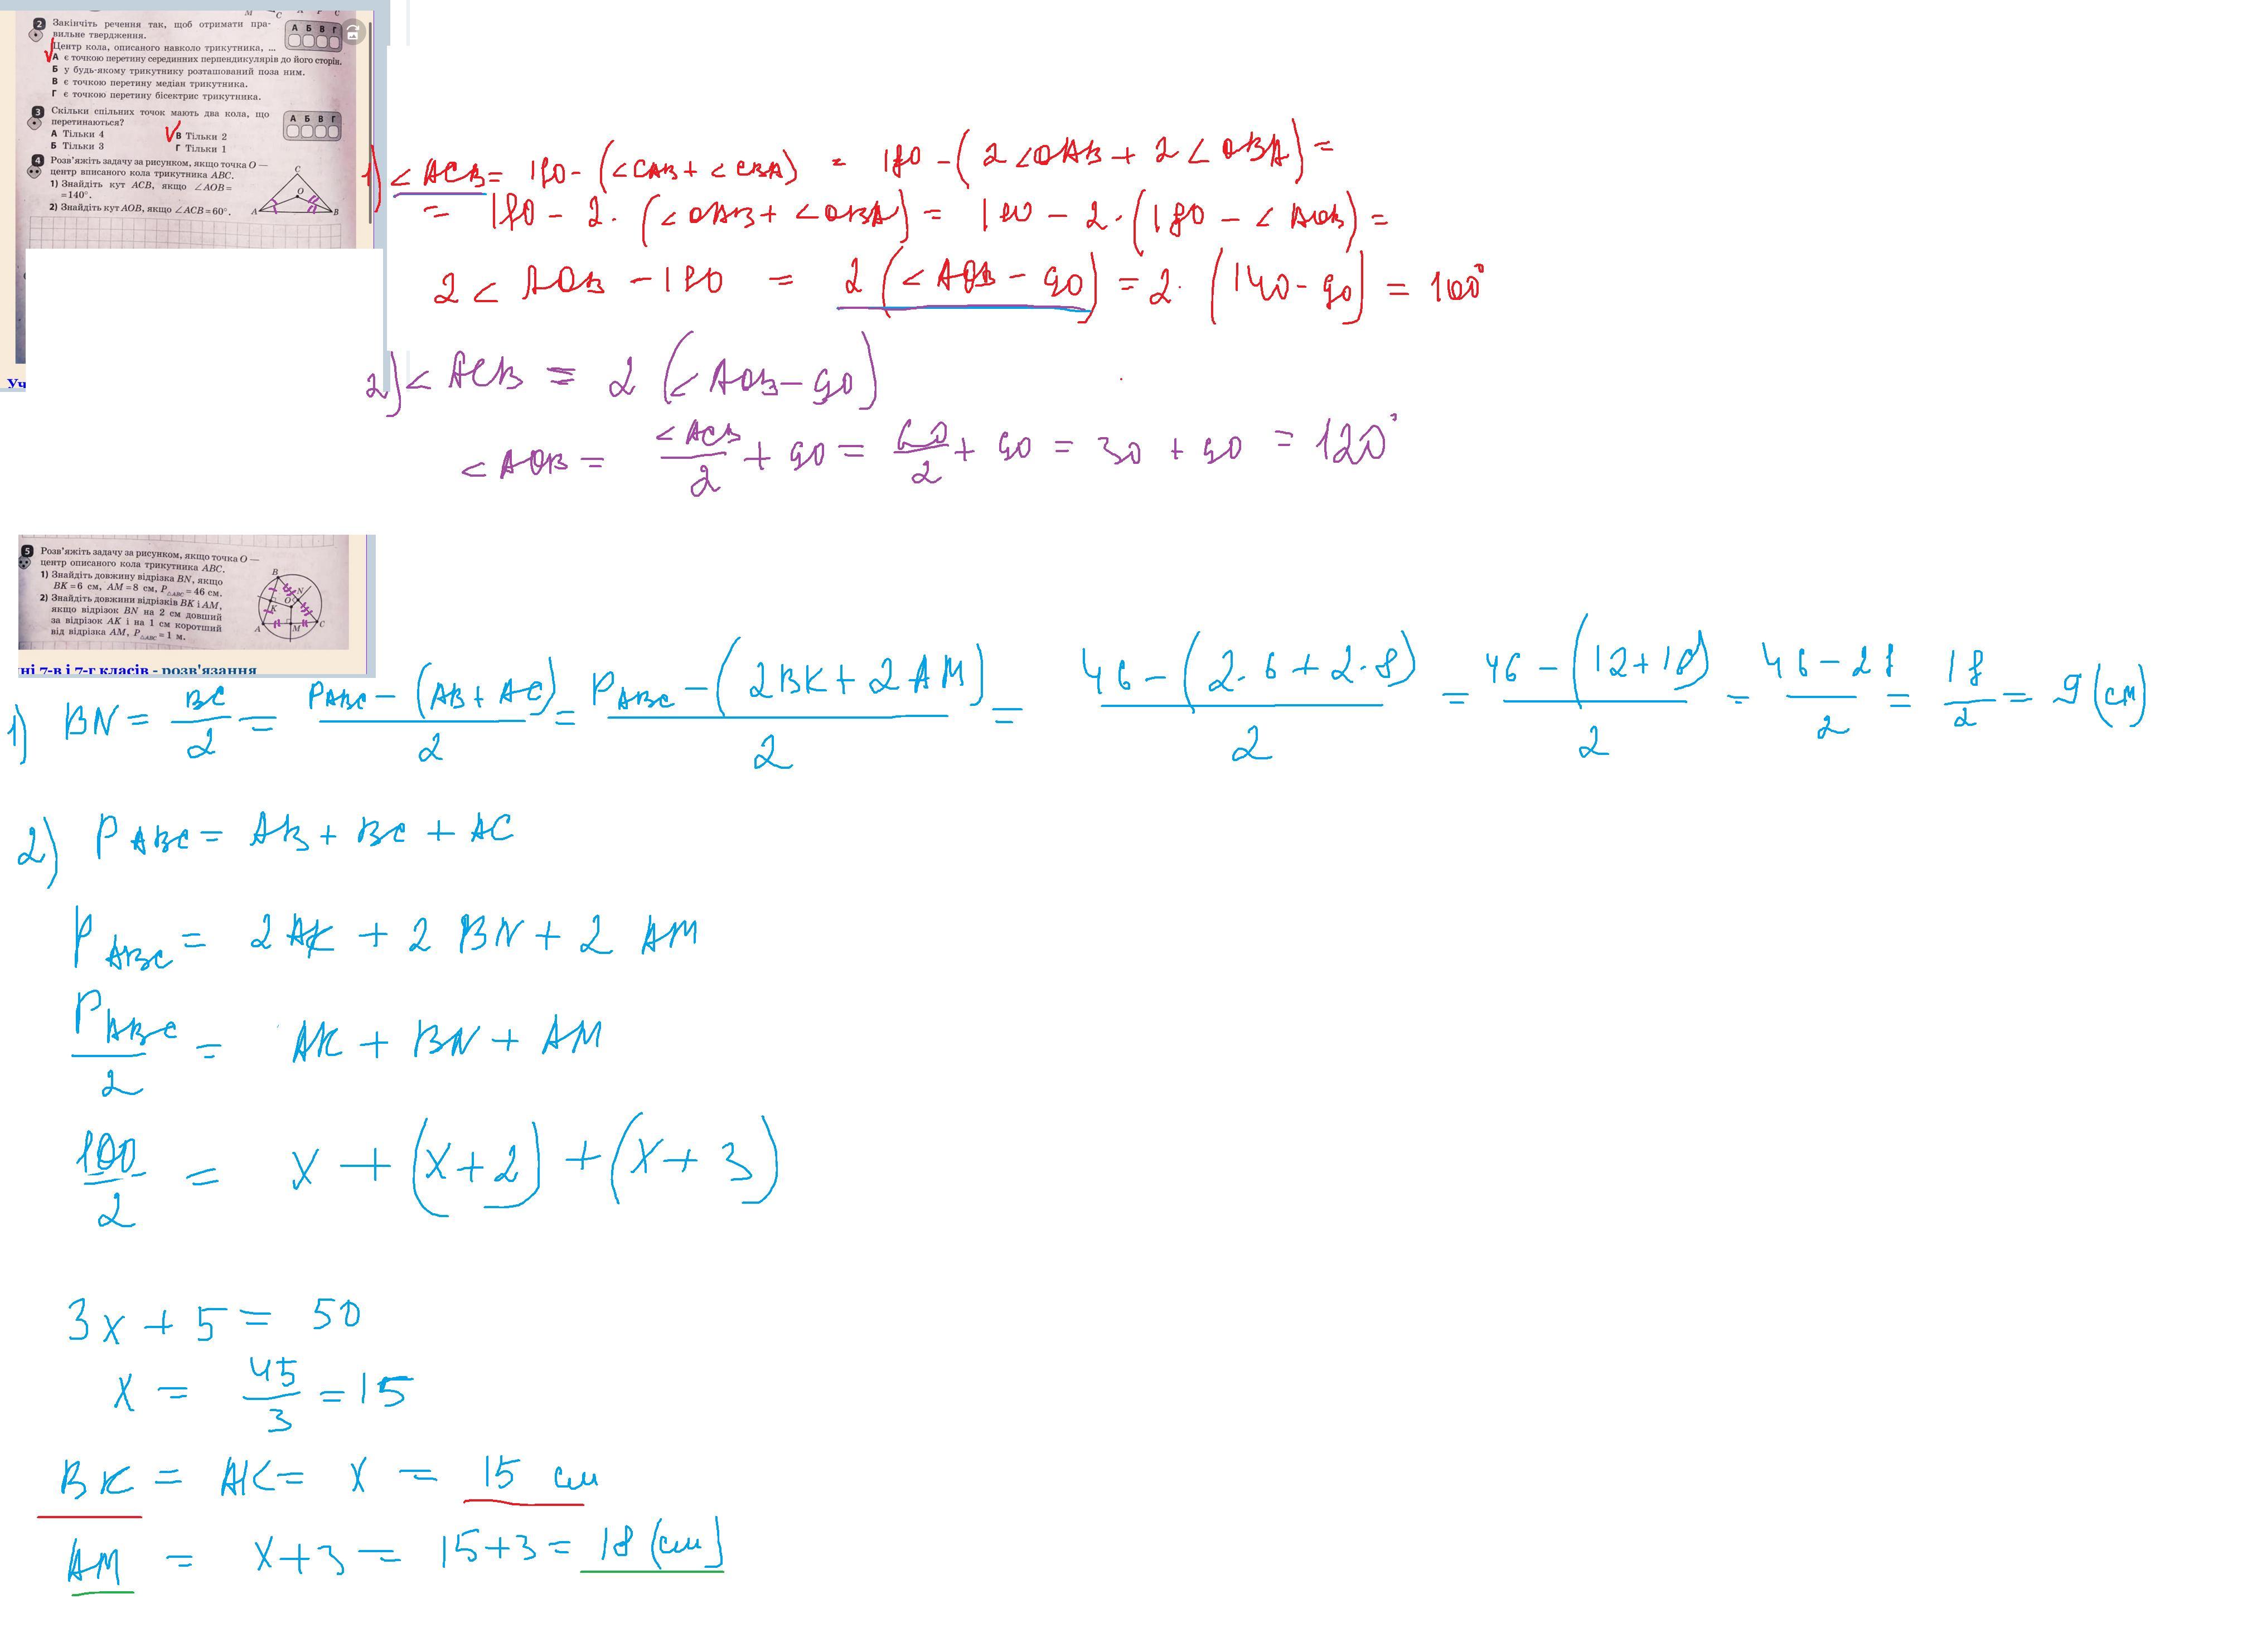 2 Закінчіть речення так, щоб отримати пра-
вильне твердження.
А Б В Г
Центр кола, описаного навколо трикутника, ...
А є точкою перетину серединних перпендикулярів до його сторін.
Б у будь-якому трикутнику розташований поза ним.
В є точкою перетину медіан трикутника.
Г є точкою перетину бісектрис трикутника.
3 Скільки спільних точок мають два кола, що
перетинаються?
А Б В Г
А Тільки 4
В Тільки 2
Б Тільки 3
Г Тільки 1
4 Розв'яжіть задачу за рисунком, якщо точка O —
центр вписаного кола трикутника ABC.
1) Знайдіть кут ACB, якщо ∠AOB=
=140°.
2) Знайдіть кут AOB, якщо ∠ACB=60°.
C
O
A B
Уч
1) ∠ACB = 180 - (∠CAB + ∠CBA) = 180 - (2∠OAB + 2∠OBA) =
= 180 - 2·(∠OAB + ∠OBA) = 180 - 2·(180 - ∠AOB) =
2∠AOB - 180 = 2(∠AOB - 90) = 2·(140-90) = 100°
2) ∠ACB = 2(∠AOB - 90)
∠AOB = ∠ACB/2 + 90 = 60/2 + 90 = 30 + 90 = 120°
5 Розв'яжіть задачу за рисунком, якщо точка O —
центр описаного кола трикутника ABC.
1) Знайдіть довжину відрізка BN, якщо
BK=6 см, AM=8 см, P△ABC=46 см.
2) Знайдіть довжини відрізків BK і AM,
якщо відрізок BN на 2 см довший
за відрізок AK і на 1 см коротший
від відрізка AM, P△ABC=1 м.
B
N
O
K
A M C
ні 7-в і 7-г класів - розв'язання
1) BN = BC/2 = PABC - (AB + AC)/2 = PABC - (2BK + 2AM)/2 = 46 - (2·6 + 2·8)/2 = 46 - (12+16)/2 = 46-28/2 = 18/2 = 9 (см)
2) PABC = AB + BC + AC
PABC = 2AK + 2BN + 2AM
PABC/2 = AK + BN + AM
100/2 = x + (x+2) + (x+3)
3x + 5 = 50
x = 45/3 = 15
BK = AK = x = 15 см
AM = x+3 = 15+3 = 18 (см)